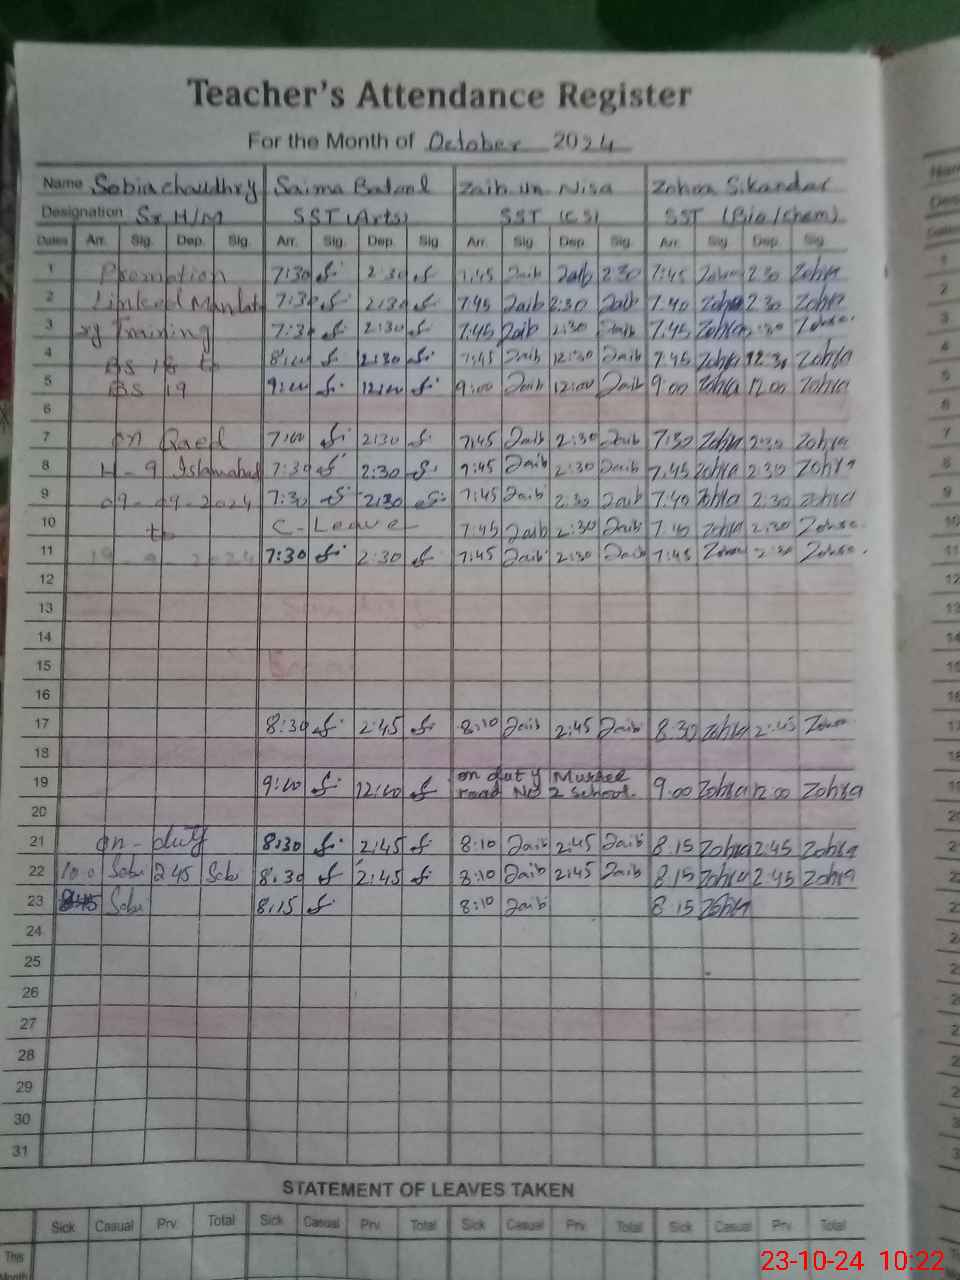 Teacher's Attendance Register
For the Month of October 2024
Name Sobia Chaudhry Saima Batool Zaib un Nisa Zohra Sikandar
Designation Sr H/M SST (Arts) SST (CS) SST (Bio/Chem)
Dates Arr. Sig. Dep. Sig. Arr. Sig. Dep. Sig Arr. Sig Dep. Sig. Arr. Sig Dep. Sig
1 Promotion 7:30 2:30 7:45 Zaib Zaib 2:30 7:45 Zohra 2:30 Zohra
2 Linked Mandato 7:30 2:30 7:45 Zaib 2:30 Zaib 7:40 Zohra 2:30 Zohra
3 ry Training 7:30 2:30 7:45 Zaib 2:30 Zaib 7:45 Zohra 2:30 Zohra
4 BS 18 to 2:30 7:45 Zaib 12:30 Zaib 7:45 Zohra 12:30 Zohra
5 BS 19 9:00 12:00 9:00 Zaib 12:00 Zaib 9:00 Zohra 12:00 Zohra
6
7 on Qaed 7:00 2:30 7:45 Zaib 2:30 Zaib 7:30 Zohra 2:30 Zohra
8 H-9 Islamabad 7:30 2:30 7:45 Zaib 2:30 Zaib 7:45 Zohra 2:30 Zohra
9 09-09-2024 7:30 2:30 7:45 Zaib 2:30 Zaib 7:40 Zohra 2:30 Zohra
10 to C-Leave 7:45 Zaib 2:30 Zaib 7:45 Zohra 2:30 Zohra
11 19 9 2024 7:30 2:30 7:45 Zaib 2:30 Zaib 7:45 Zohra 2:30 Zohra
12
13
14
15
16
17 8:30 2:45 8:10 Zaib 2:45 Zaib 8:30 Zohra 2:45 Zohra
18
19 9:00 12:00 on duty Muslim road No 2 School. 9:00 Zohra 12:00 Zohra
20
21 on-duty 8:30 2:45 8:10 Zaib 2:45 Zaib 8:15 Zohra 2:45 Zohra
22 10:0 Sobi 2 45 Sobi 8:30 2:45 8:10 Zaib 2:45 Zaib 8:15 Zohra 2:45 Zohra
23 Sobi 8:15 8:10 Zaib 8:15 Zohra
24
25
26
27
28
29
30
31
STATEMENT OF LEAVES TAKEN
Sick Casual Prv. Total Sick Casual Prv. Total Sick Casual Prv. Total Sick Casual Prv. Total
This
Month
23-10-24 10:22